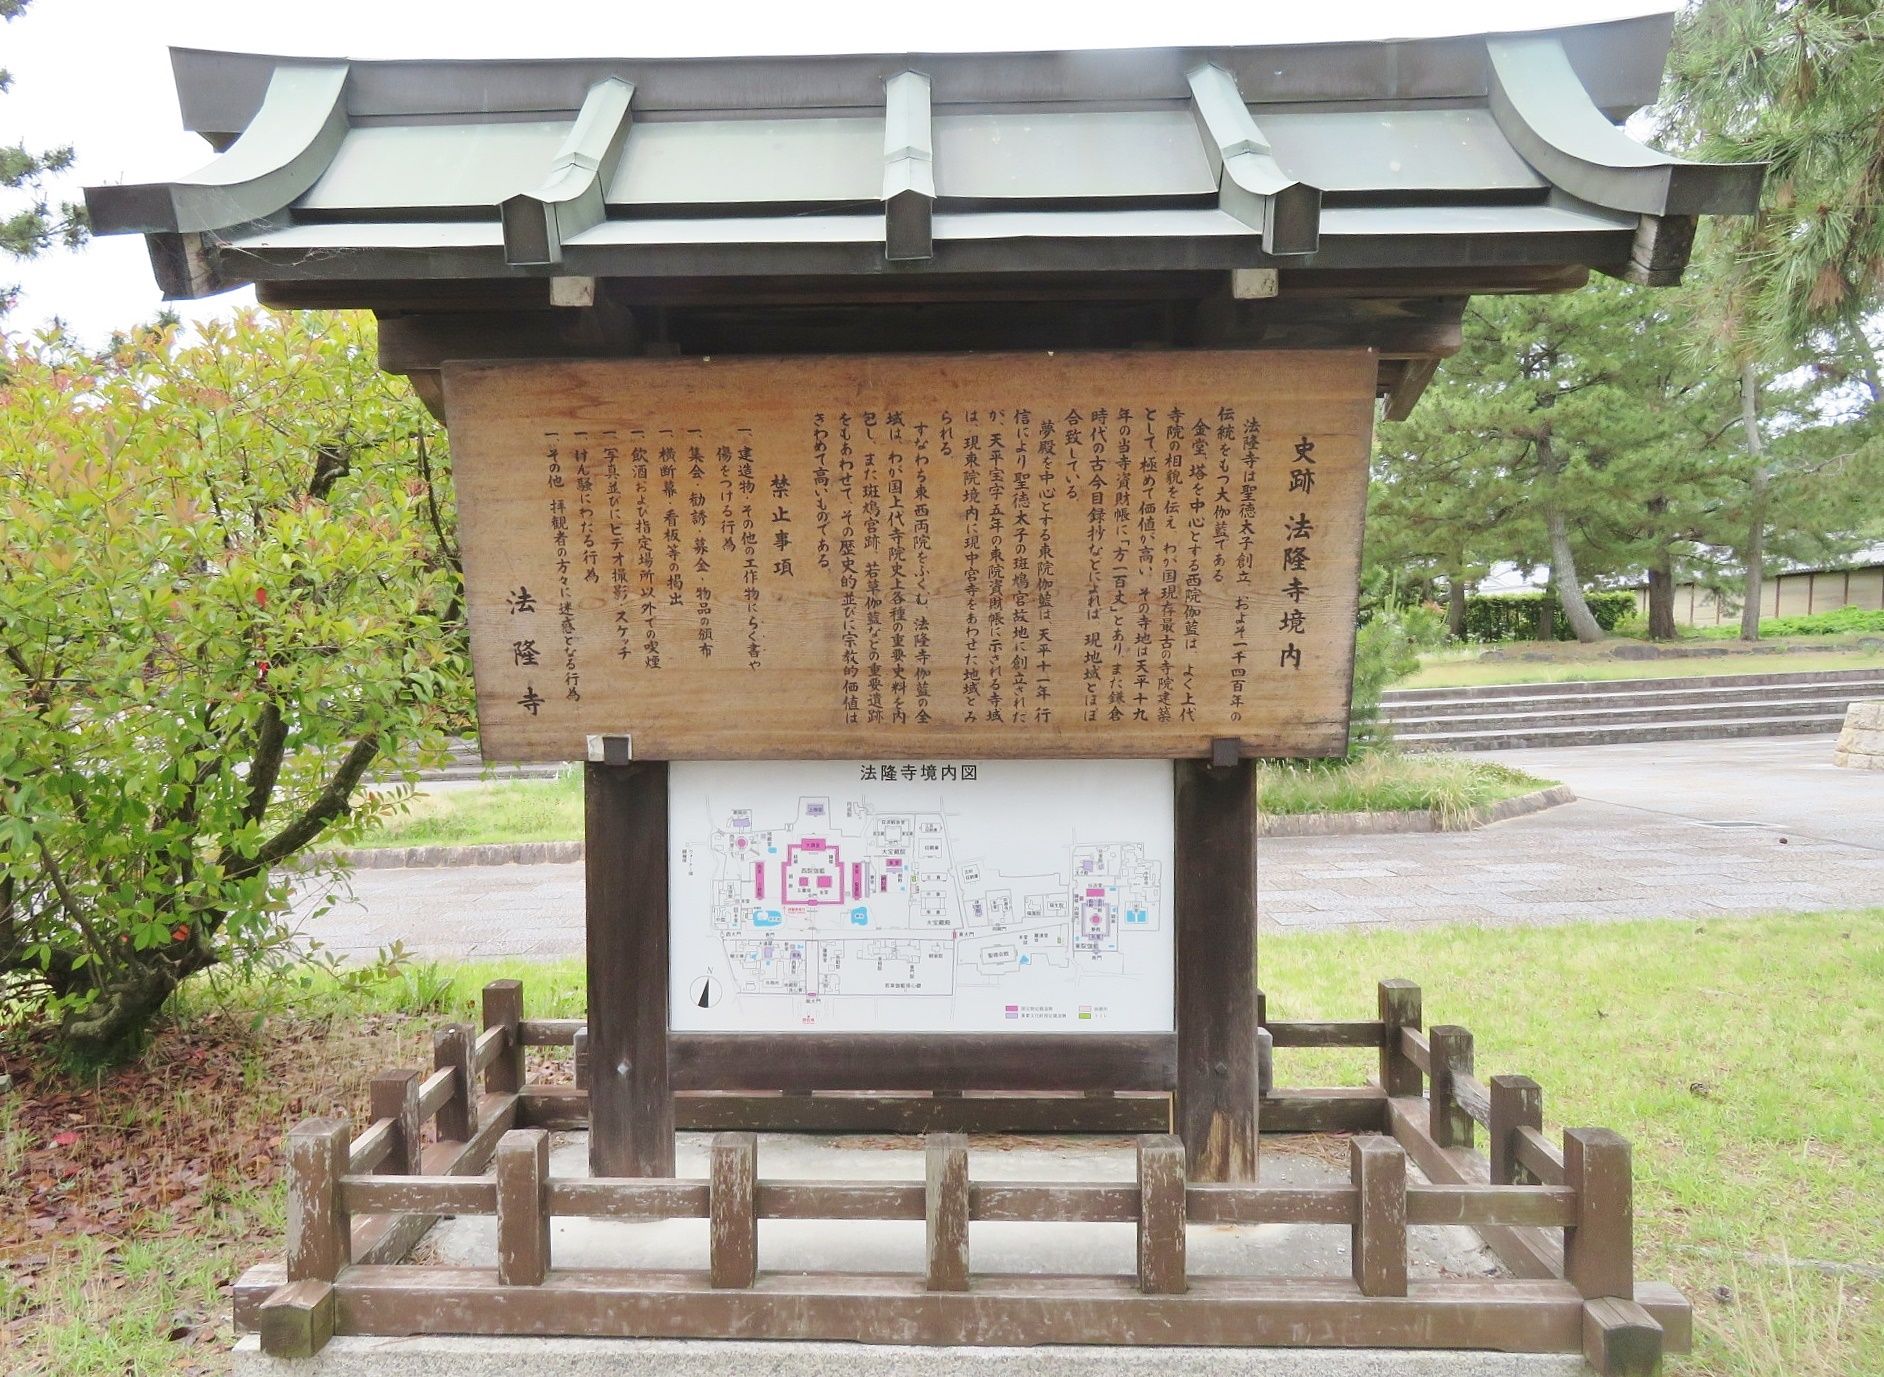 史跡 法隆寺境内
法隆寺は聖徳太子創立、およそ一千四百年の
伝統をもつ大伽藍である。
金堂、塔を中心とする西院伽藍は、よく上代
寺院の相貌を伝え、わが国現存最古の寺院建築
として、極めて価値が高い。その寺地は天平十九
年の当寺資財帳に「方一百丈」とあり、また鎌倉
時代の古今目録抄などによれば、現地域とほぼ
合致している。
夢殿を中心とする東院伽藍は、天平十一年、行
信により聖徳太子の斑鳩宮故地に創立された
が、天平宝字五年の東院資財帳に示される寺域
は、現東院境内に現中宮寺をあわせた地域とみ
られる。
すなわち東西両院をふくむ、法隆寺伽藍の全
域は、わが国上代寺院史上各種の重要史料を内
包し、また斑鳩宮跡、若草伽藍などの重要遺跡
をもあわせて、その歴史的並びに宗教的価値は
きわめて高いものである。
禁止事項
一、建造物、その他の工作物にらく書や
傷をつける行為
一、集会、勧誘、募金、物品の頒布
一、横断幕、看板等の掲出
一、飲酒および指定場所以外での喫煙
一、写真並びにビデオ撮影、スケッチ
一、けん騒にわたる行為
一、その他、拝観者の方々に迷惑となる行為
法隆寺
法隆寺境内図
西院伽藍
大宝蔵院
大宝蔵殿
東大門
西大門
南大門
聖徳会館
東院伽藍
若草伽藍塔心礎
N